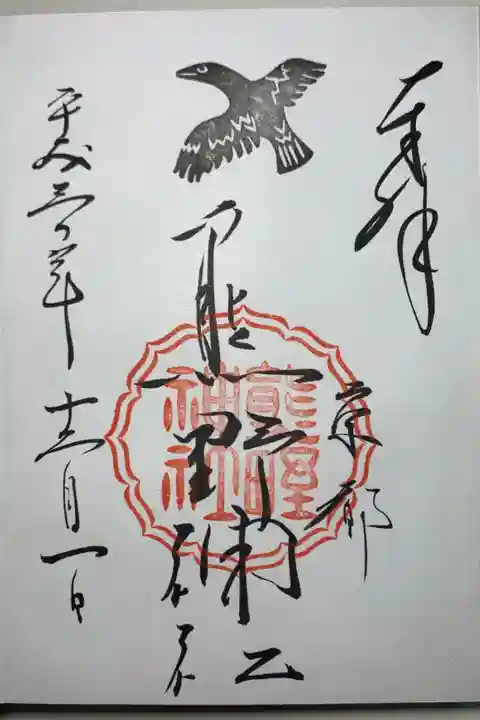 奉拝
京都
熊野神社
平成三〇年
十二月一日
熊野
神社